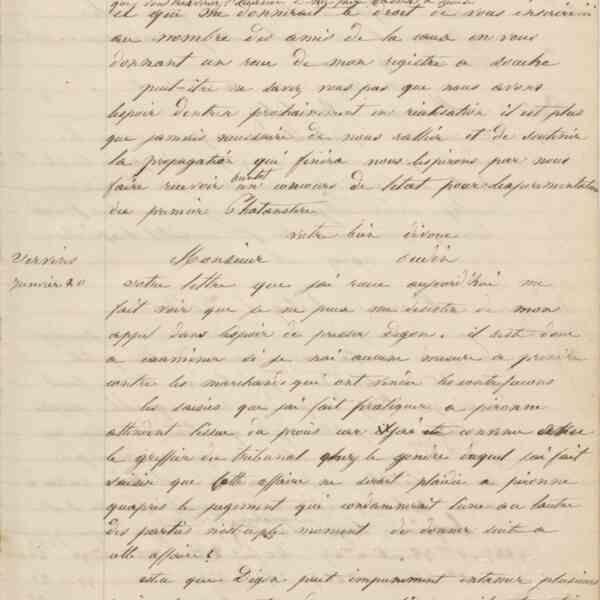 et qui me donnerait le droit de vous inscrire
au nombre des amis de la cause en vous
donnant un reçu de mon registre a souche
peut-être ne savez vous pas que nous avons
lespoir dentrer prochainement en réalisation il est plus
que jamais necessaire de nous rallier et de soutenir
la propagation qui finira nous lesperons par nous
faire recevoir bientot un concours de letat pour lexperimentation
du premier Phalanstere
votre bien devoué
Vervins Monsieur Godin
Janvier 20 votre lettre que jai recue aujourdhui me
fait voir que je ne peux me desister de mon
appel dans lespoir de presser Degon. il reste donc
a examiner si je nai aucune mesure a prendre
contre les marchands qui ont vendu les contrefacons
les saisies que jai fait pratiquer a
attendent lissue du procès car convenu
le greffier du tribunal chez le gendre duquel jai fait
saisir que cette affaire ne serait plaidée a
quapres le jugement qui condamnerait lune ou lautre
des parties nest-ce pas le moment de donner suite a
cette affaire?
est-ce que Degon peut impunement entasser plusieurs